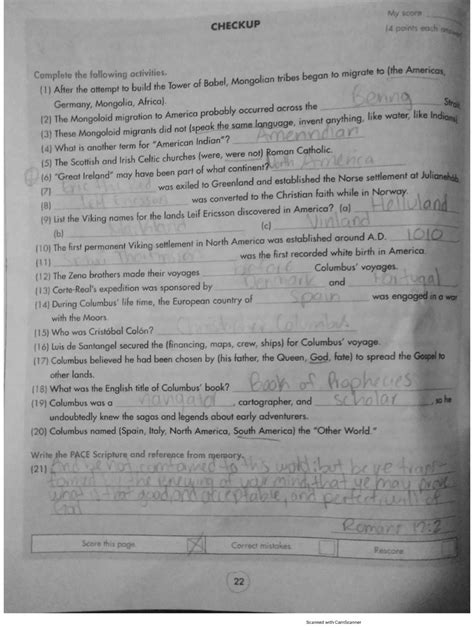 My score
CHECKUP
(4 points each answer)
Complete the following activities.
(1) After the attempt to build the Tower of Babel, Mongolian tribes began to migrate to (the Americas,
Germany, Mongolia, Africa).
(2) The Mongoloid migration to America probably occurred across the Bering Strait
(3) These Mongoloid migrants did not (speak the same language, invent anything, like water, like Indians)
(4) What is another term for "American Indian"? Amerindian
(5) The Scottish and Irish Celtic churches (were, were not) Roman Catholic.
(6) "Great Ireland" may have been part of what continent? North America
(7) Eric the Red was exiled to Greenland and established the Norse settlement at Julianehab
(8) Leif Ericsson was converted to the Christian faith while in Norway.
(9) List the Viking names for the lands Leif Ericsson discovered in America? (a) Helluland
(b) Markland (c) Vinland
(10) The first permanent Viking settlement in North America was established around A.D. 1010
(11) was the first recorded white birth in America.
(12) The Zeno brothers made their voyages before Columbus' voyages.
(13) Corte-Real's expedition was sponsored by Denmark and Portugal
(14) During Columbus' life time, the European country of Spain was engaged in a war
with the Moors.
(15) Who was Cristóbal Colón? Christopher Columbus
(16) Luis de Santangel secured the (financing, maps, crew, ships) for Columbus' voyage.
(17) Columbus believed he had been chosen by (his father, the Queen, God, fate) to spread the Gospel to
other lands.
(18) What was the English title of Columbus' book? Book of Prophecies
(19) Columbus was a navigator, cartographer, and scholar, so he
undoubtedly knew the sagas and legends about early adventurers.
(20) Columbus named (Spain, Italy, North America, South America) the "Other World."
Write the PACE Scripture and reference from memory.
(21) And be not conformed to this world: but be ye trans-
formed by the renewing of your mind, that ye may prove
what is that good, and acceptable, and perfect, will of
God
Romans 12:2
Score this page.
Correct mistakes.
Rescore.
22
Scanned with CamScanner